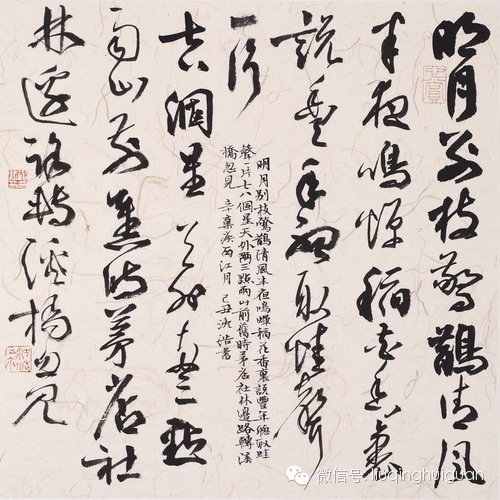 明月别枝驚鵲清風
半夜鳴蟬稻花香裏
說豐年聽取蛙聲
一片
七八個星天外兩三點
雨山前舊時茅店社
林邊路轉溪橋忽見
明月别枝驚鵲清風半夜鳴蟬稻花香裏說豐年聽取蛙
聲一片七八個星天外兩三點雨山前舊時茅店社林邊路轉溪
橋忽見 辛棄疾西江月 己丑沈浩書
微信号: liuqinghuiguan